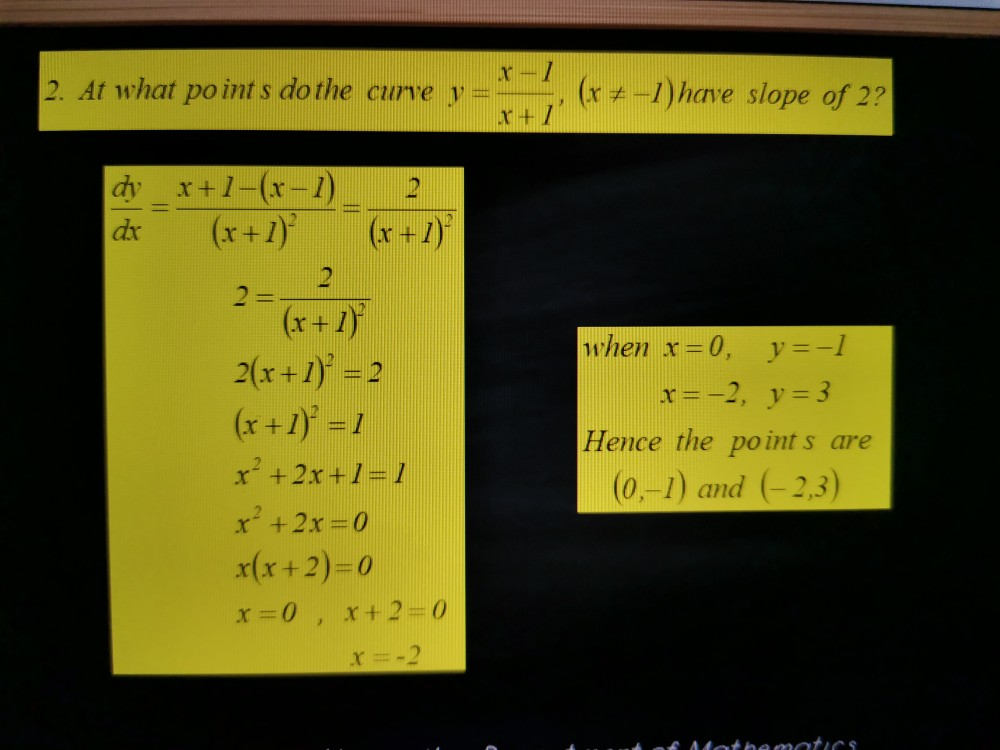 2. At what points do the curve y = \frac{x-1}{x+1}, (x ≠ -1) have slope of 2?
\frac{dy}{dx} = \frac{x+1-(x-1)}{(x+1)^2} = \frac{2}{(x+1)^2}
2 = \frac{2}{(x+1)^2}
2(x+1)^2 = 2
(x+1)^2 = 1
x^2 + 2x + 1 = 1
x^2 + 2x = 0
x(x+2) = 0
x = 0 , x + 2 = 0
x = -2
when x = 0, y = -1
x = -2, y = 3
Hence the points are
(0,-1) and (-2,3)
of Mathematics